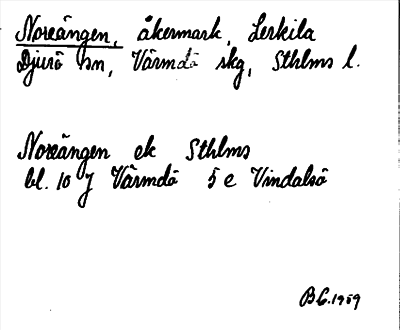 Noreängen, åkermark, Lerkila
Djurö sn, Värmdö skg, Sthlms l.
Noreängen ek Sthlms
bl. 10 J Värmdö 5 e Vindalsö
B.C. 1959